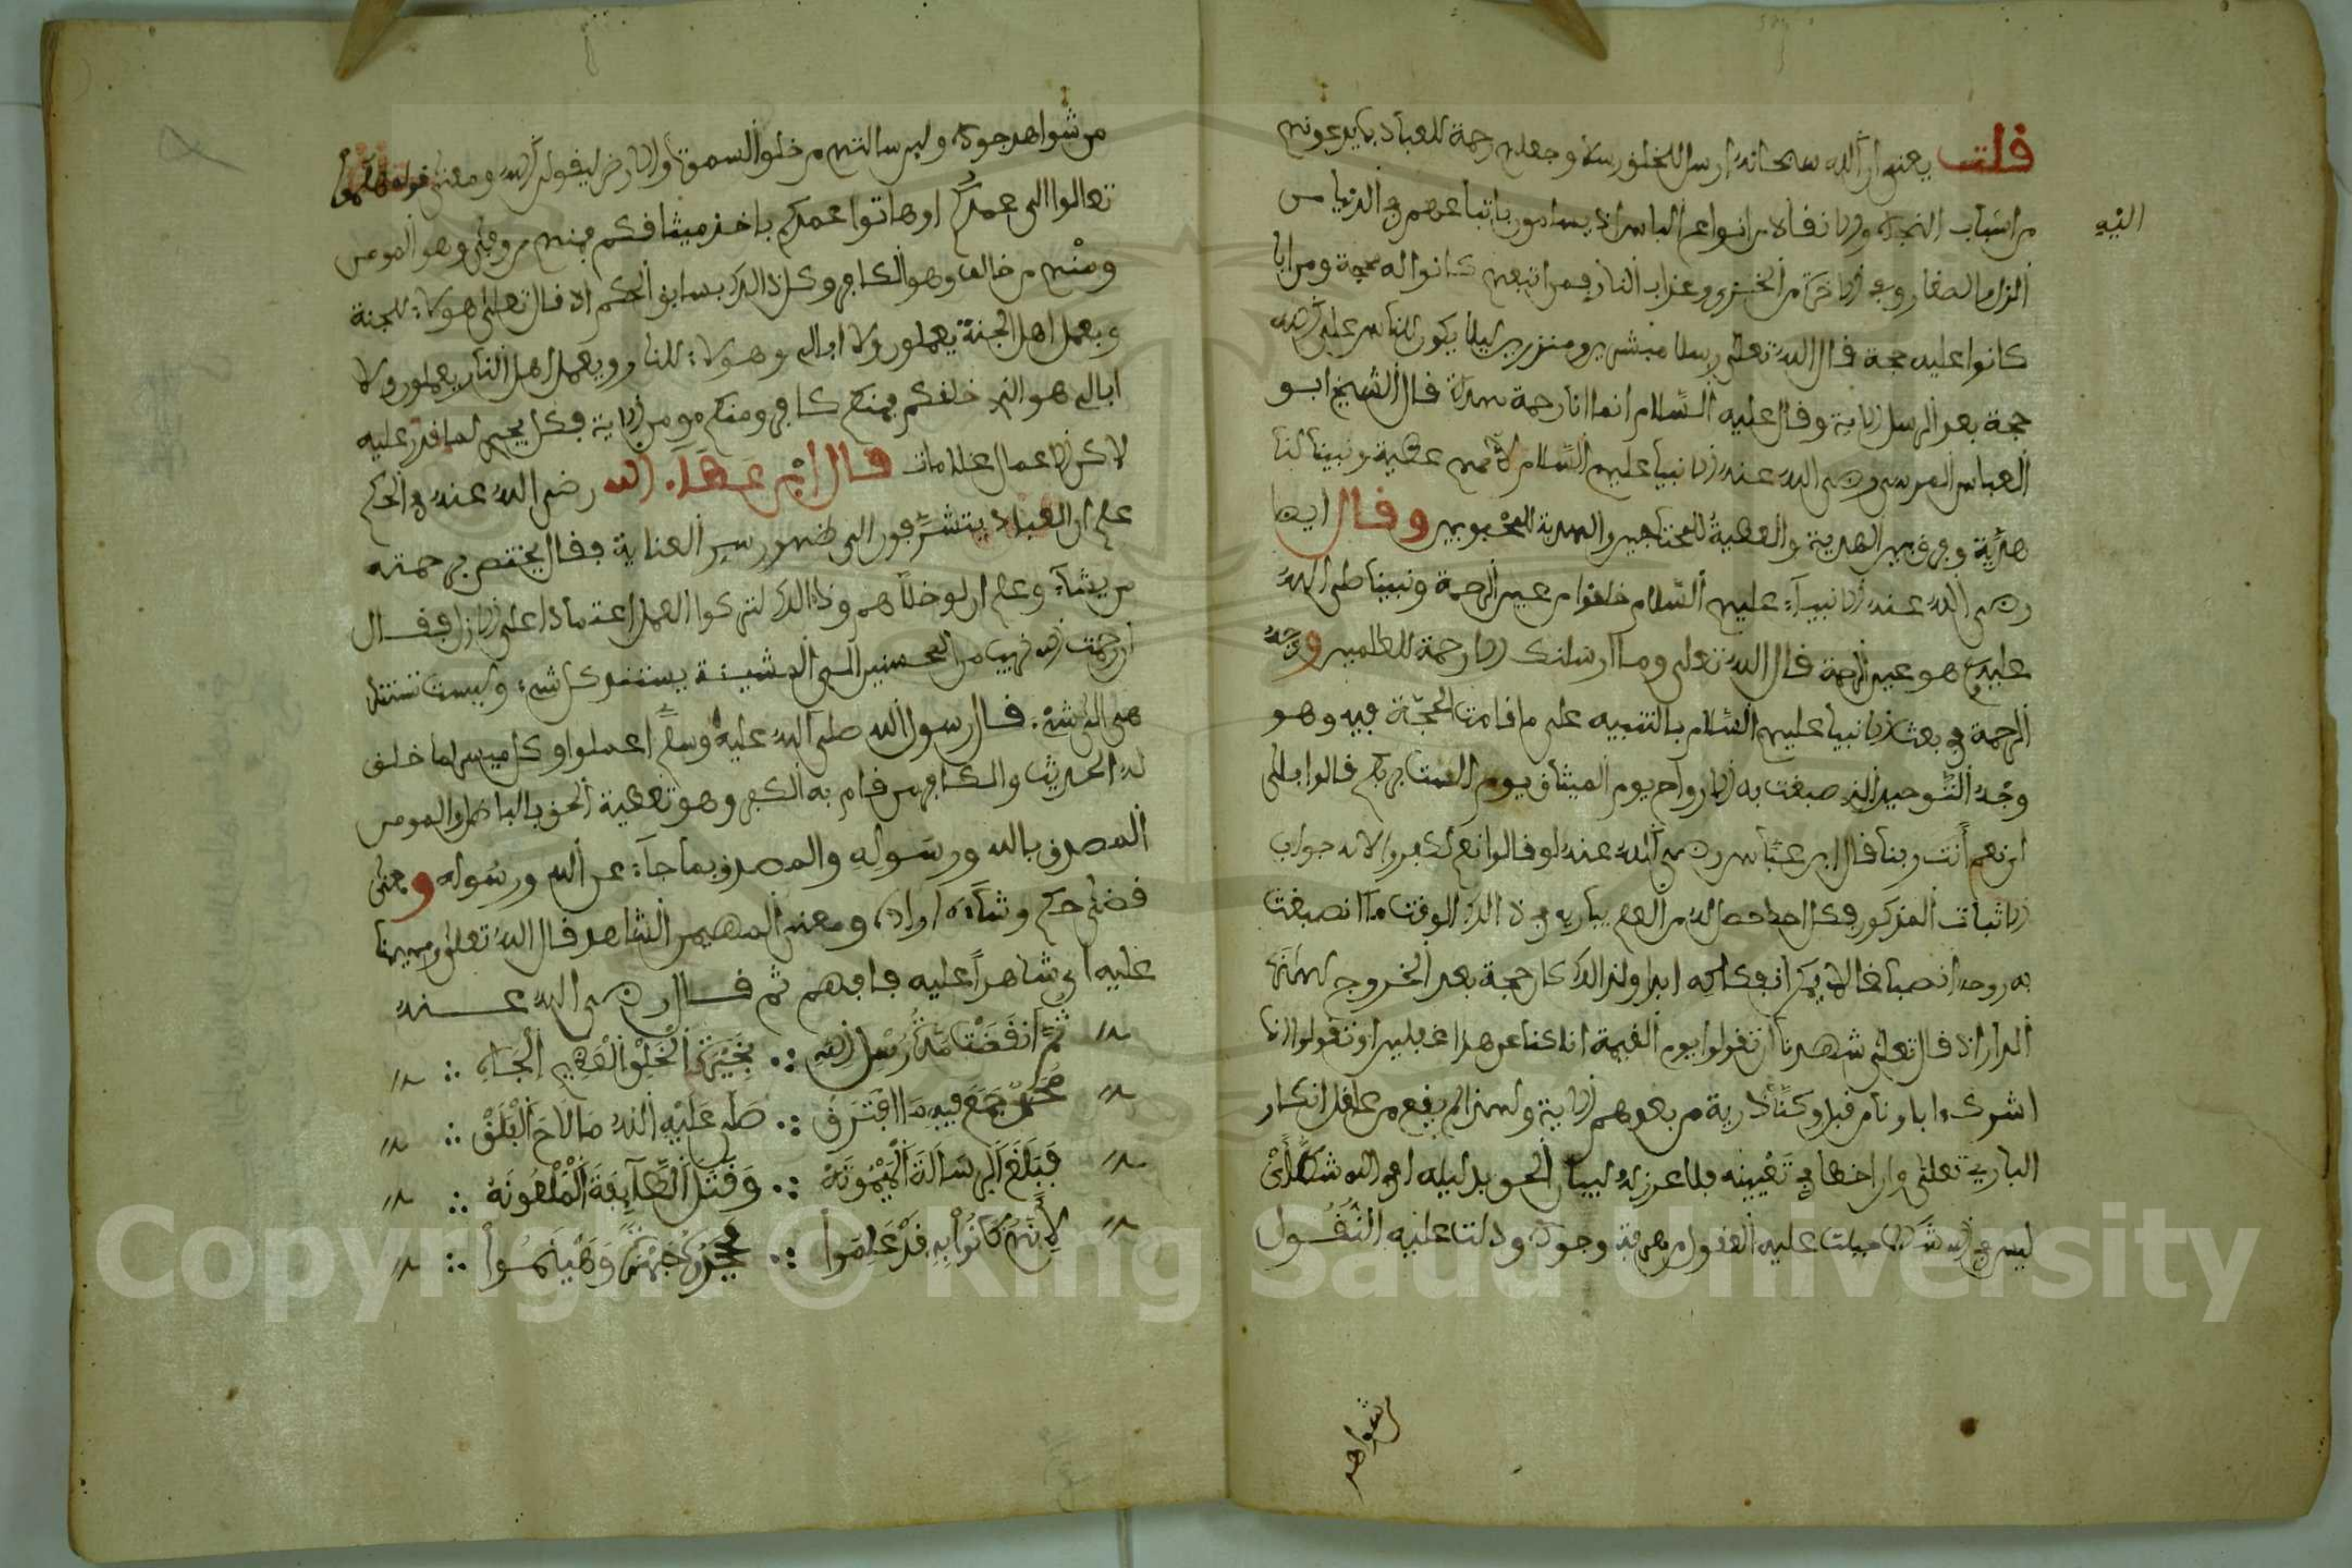 قلت يعني ان الله سبحانه ارسل للخلق رسلا وجعلهم رحمة للعباد بما يدعونهم
اليه
من اسباب النجاة والانقاذ من انواع الباس اذ يسلمون باتباعهم في الدنيا من
الزام الصغار وفي الاخرة من الخزي وعذاب النار فمن اتبعهم كانوا له حجة ومن ابا
كانوا عليه حجة قال الله تعلى رسلا مبشرين ومنذرين ليلا يكون للناس على الله
حجة بعد الرسل الاية وقال عليه السلام انما انا رحمة مهداة قال الشيخ ابو
العباس المرسي رضي الله عنه الانبيا عليهم السلام لاممهم عطية ونبينا لنا
هدية وفرق بين الهدية والعطية للمحتاجين والهدية للمحبوبين وقال ايضا
رضي الله عنه الانبيآء عليهم السلام خلقوا من عين الرحمة ونبينا صلى الله
عليه وسلم هو عين الرحمة قال الله تعلى وما ارسلنك الا رحمة للعلمين ووجه
الرحمة في بعث الانبيا عليهم السلام بالتنبيه على ما قامت الحجة فيه وهو
وجه التوحيد الذي صبغت به الارواح يوم الميثاق يوم الست بربكم قالوا بلى
اي نعم انت ربنا قال ابن عباس رضي الله عنه لو قالوا نعم لكفروا لانه جواب
الاثبات المذكور فكل احد حصل له من العلم بباريه في ذلك الوقت ما انصبغت
به روحه انصباغا لا يمكن انفكاكه ابدا ولذلك كان حجة بعد الخروج لهذه
الدار اذ قال تعلى شهدنا ان تقولوا يوم القيمة انا كنا عن هذا غفلين او تقولوا انما
اشرك اباونا من قبل وكنا ذرية من بعدهم الاية ولهذا لم يقع من عاقل انكار
الباري تعلى وان اخطا في تعيينه فلا عذر له لبيان الحق بدليله افي الله شك اي
ليس في الله شك لما جبلت عليه العقول من معرفة وجوده ودلت عليه النقول
شواهد
من شواهد جوده ولئن سالتهم من خلق السموت والارض ليقولن الله ومعنى قوله هلموا
تعالوا الى عهدكم او هاتوا عهدكم باخذ ميثاقكم فمنهم من وفى وهو المومن
ومنهم من خالف وهو الكافر وكل ذلك بسابق الحكم اذ قال تعلى هولاء للجنة
وبعمل اهل الجنة يعملون ولا ابالي وهولاء للنار وبعمل اهل النار يعملون ولا
ابالي هو الذي خلقكم فمنكم كافر ومنكم مومن الاية فكل يجري لما قدر عليه
لاكن الاعمال علامات قال ابن عطاء الله رضي الله عنه في الحكم
علم ان العباد يتشوفون الى ظهور سر العناية فقال يختص برحمته
من يشآء وعلم ان لو خلاهم وذالك لتركوا العمل اعتمادا على الازل فقال
ان رحمت الله قريب من المحسنين الى المشيئة يستند كل شيء وليست تستند
هي الى شيء قال رسول الله صلى الله عليه وسلم اعملوا وكل ميسر لما خلق
له الحديث والكافر من قام به الكفر وهو تغطية الحق بالباطل والمومن
المصدق بالله ورسوله والمصدق بما جآء عن الله ورسوله ومعنى
قضى حكم وشآءه اراده ومعنى المهيمن الشاهد قال الله تعلى ومهيمنا
عليه اي شاهدا عليه فافهم ثم قال رضي الله عنه
ثُمَّ انقَضَتْ مُدَّةُ رُسْلِ اللهِ ∴ بِخَيْرَةِ الْخَلْقِ الْعَظِيمِ الْجَاهِ ∴
مُحَمَّدٌ جُمِّعَ فِيهِ مَا افْتَرَقْ ∴ صَلَّى عَلَيْهِ اللهُ مَا لَاحَ الْفَلَقْ ∴
فَبَلَّغَ الرِّسَالَةَ الْمَيْمُونَهْ ∴ وَقَتَلَ الطَّآيِفَةَ الْمَلْعُونَهْ ∴
لِأَنَّهُمْ كَانُوا بِهِ قَدْ عَلِمُوا ∴